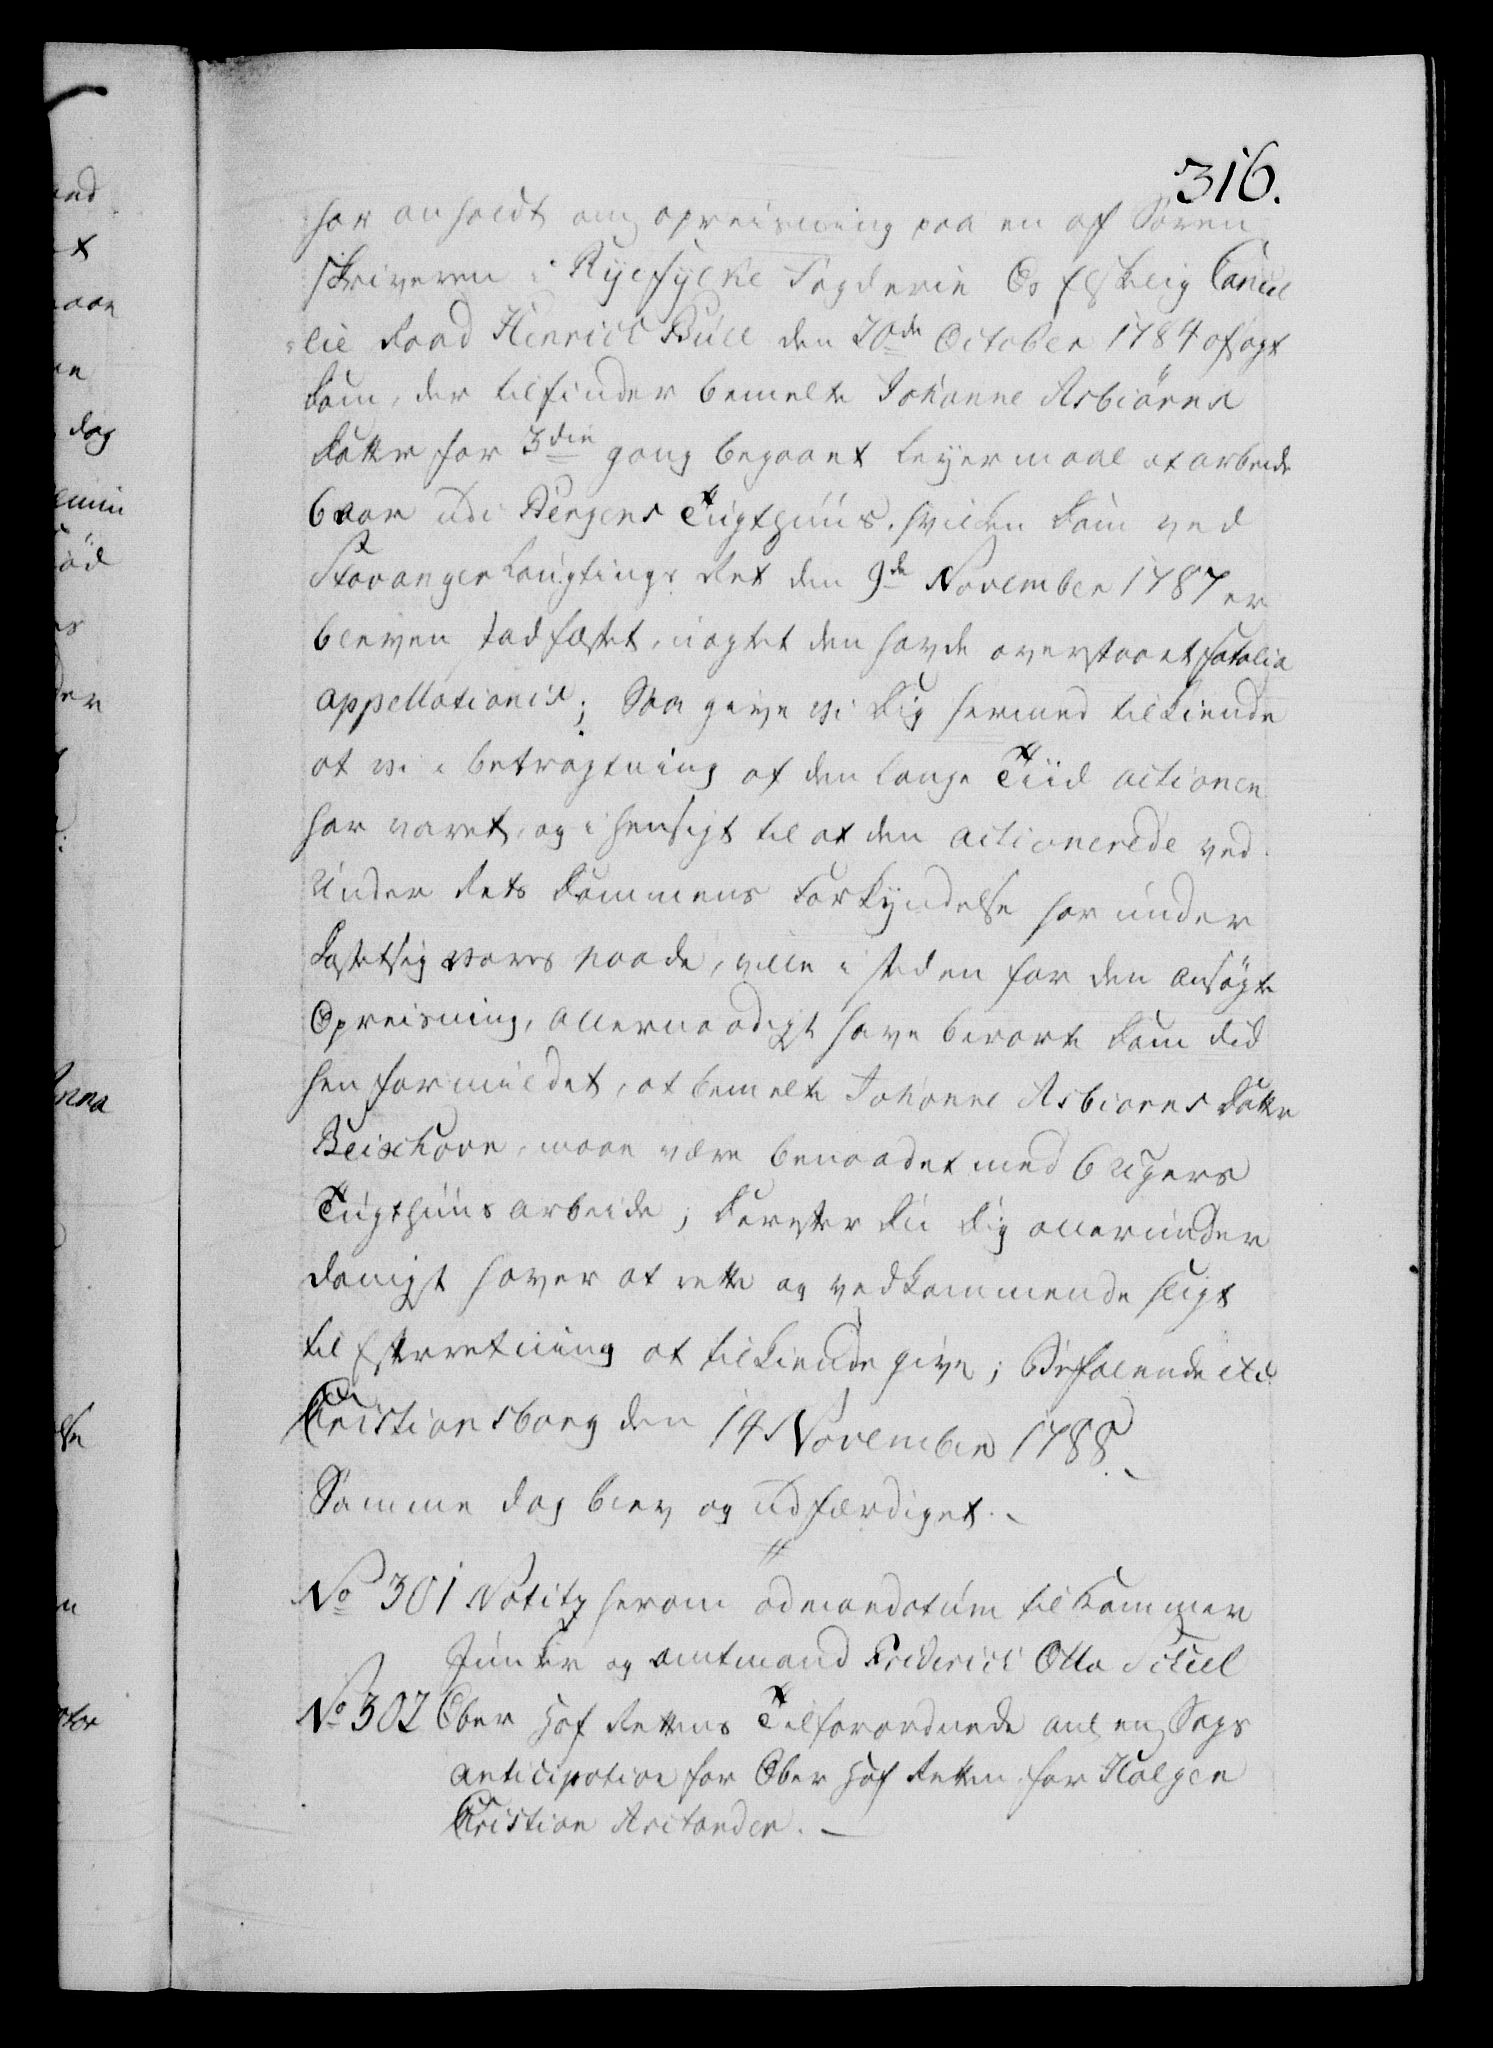 316.
har anholdt om opreisning paa en af Soren
skriveren i Ryefylke Fogderie Os Elskelig Cancel
lie Raad Henrich Bull den 20de October 1784 afsagt
Dom, der tilfinder bemelte Johanne Asbiörns
Datter for 3die gang begaaet Leyermaal at arbeide
6 aar udi Bergens Tugthuus. hvilken Dom ved
Stavanger Laugtings Ret den 9de November 1787 er
bleven stadfæstet, uagtet den havde overstaaet fatalia
appellationis; Saa give vi Dig hermed tilkiende
at vi i betragtning af den lange Tiid actionen
har varet, og i hensigt til at den actionerede ved
Under Rets Dommens Forkyndelse har under
kastet sig vores Naade, ville i steden for den ansøgte
Opreisning, allernaadigst have berørte Dom did
hen formildet, at bemelte Johanne Asbiørns Datter
maae være benaadet med 6 Ugers
Tugthuus arbeide; Derefter Du Dig allerunder
danigst haver at rette og vedkommende sligt
til Efterretning at tilkiende give; Befalende etc.
Cristiansborg den 14 November 1788.
Samme dag blev og udfærdiget.
No 301 Notitz herom ad mandatum til Kammer
Junker og Amtmand Friderich Otto Scheel
No 302 Ober Hof Rettens Tilforordnede anl. en Sags
anticipation for Ober Hof Retten for Holger
Cristian Arctander.
dag
Anna